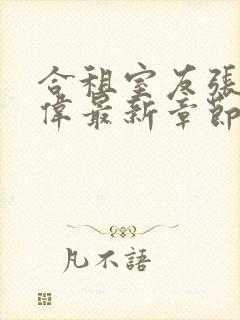 合租室友張
偉最新章節
凡不語